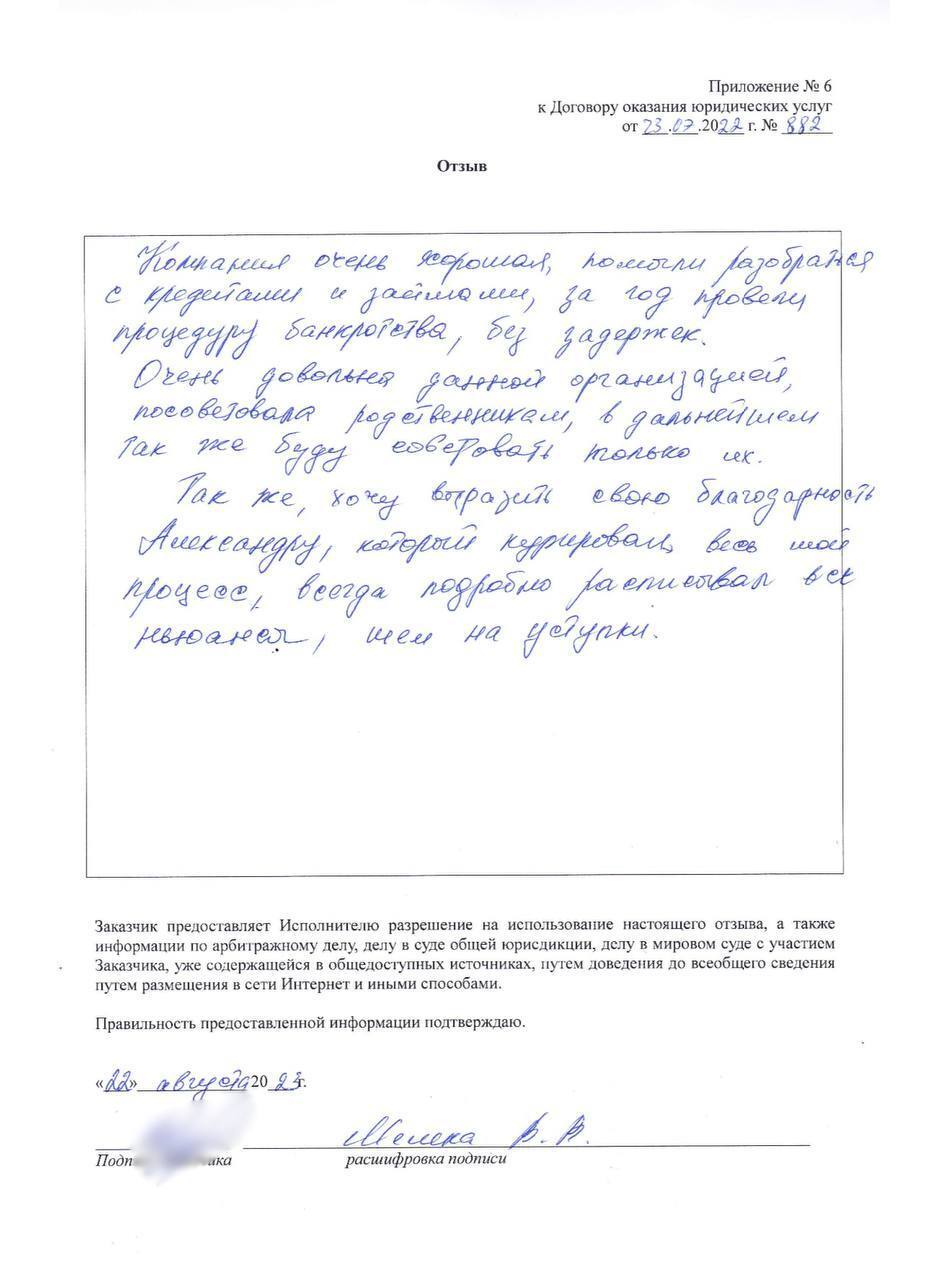 Приложение № 6
к Договору оказания юридических услуг
от 23.07.2022 г. № 882
Отзыв
Компания очень хорошая, помогли разобраться
с кредитами и займами, за год провели
процедуру банкротства, без задержек.
Очень довольна данной организацией,
посоветовала родственникам, в дальнейшем
так же буду советовать только их.
Так же, хочу выразить свою благодарность
Александру, который курировал весь мой
процесс, всегда подробно расписывал все
ньюансы, шел на уступки.
Заказчик предоставляет Исполнителю разрешение на использование настоящего отзыва, а также
информации по арбитражному делу, делу в суде общей юрисдикции, делу в мировом суде с участием
Заказчика, уже содержащейся в общедоступных источниках, путем доведения до всеобщего сведения
путем размещения в сети Интернет и иными способами.
Правильность предоставленной информации подтверждаю.
«22» августа 2023г.
В. В.
расшифровка подписи